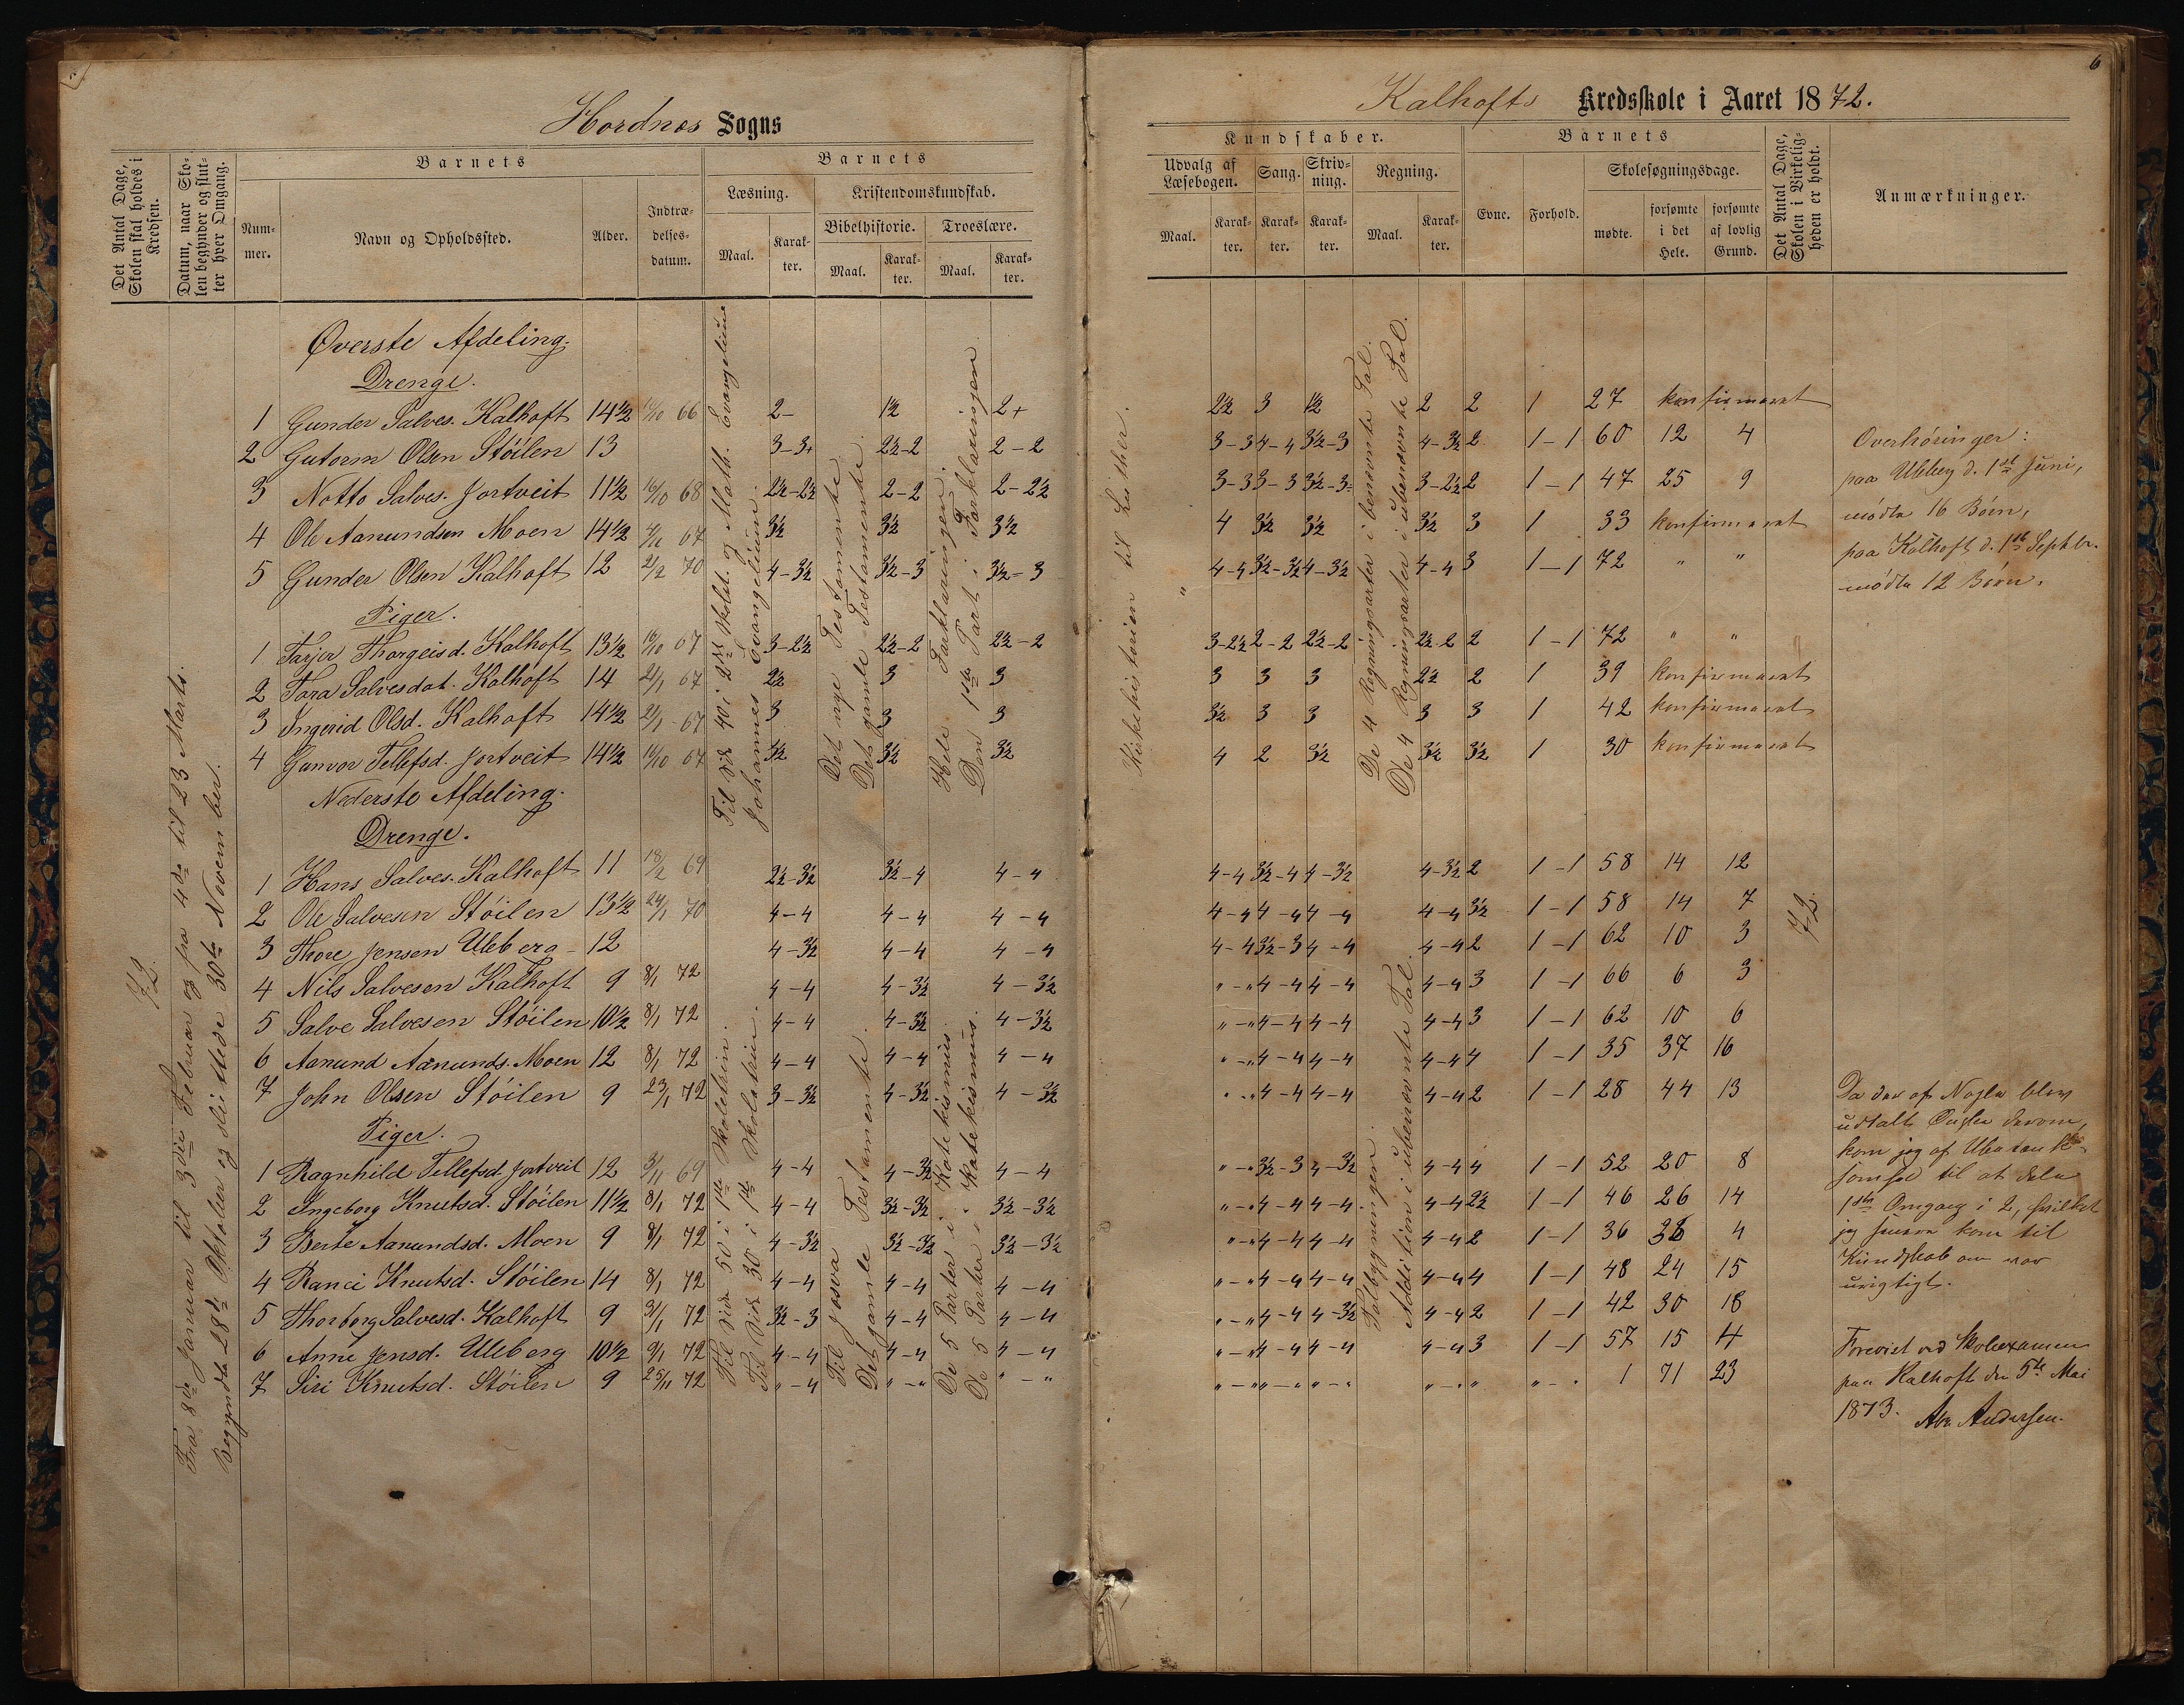 Hordnes Sogns
Det Antal Dage, Skolen skal holdes i Kredsen.
Datum, naar Skolen begynder og slutter hver Omgang.
Barnets
Nummer.
Navn og Opholdssted.
Alder.
Indtrædelsesdatum.
Barnets
Læsning.
Kristendomskundskab.
Maal.
Karakter.
Bibelhistorie.
Troeslære.
Maal.
Karakter.
Maal.
Karakter.
72.
Fra 8de Januar til 3die Februar og fra 4de til 23 Marts.
Begyndte 28de Oktober og sluttede 30te November.
Øverste Afdeling.
Drenge.
1 Gunder Salves. Kalhoft 14½ 66 2- 1½ 2+
2 Gutorm Olsen Stöilen 13 3-3+ 2½-2 2-2
3 Notto Salves. Jortveit 11½ 16/10 68 2½-2½ 2-2 2-2½
4 Ole Aanundsen Moen 14½ 67 3½ 3½ 3½
5 Gunder Olsen Kalhoft 12 21/2 70 4-3½ 3½-3 3½-3
Piger.
1 Tarjer Thorgeisd. Kalhoft 13½ 16/10 67 3-2½ 2½-2 2½-2
2 Tara Salvesdat. Kalhoft 14 21/1 67 2½ 3 3
3 Ingerid Olsd. Kalhoft 14½ 21/1 67 3 3 3
4 Gunvor Tellefsd. Jortveit 14½ 16/10 67 3½ 3½ 3½
Til Side 40 i 2det Skolet. og Math. Evangelium
Johannes Evangelium.
Det nye Testamente.
Det gamle Testamente.
Hele Forklaringen.
Den 1ste Part i Forklaringen
Nederste Afdeling.
Drenge.
1 Hans Salves. Kalhoft 11 18/2 69 2½-3½ 3½-4 4-4
2 Ole Salvesen Stöilen 13½ 24/1 70 4-4 4-4 4-4
3 Thore Jensen Uleberg 12 4-3½ 4-4 4-4
4 Nils Salvesen Kalhoft 9 8/1 72 4-4 4-3½ 4-3½
5 Salve Salvesen Stöilen 10½ 8/1 72 4-4 4-3½ 4-3½
6 Aanund Aanunds. Moen 12 8/1 72 4-4 4-4 4-4
7 John Olsen Stöilen 9 23/1 72 3-3½ 4-3½ 4-3½
Piger.
1 Ragnhild Tellefsd. Jortveit 12 3/11 69 4-4 4-3½ 4-4
2 Ingeborg Knutsd. Stöilen 11½ 8/1 72 4-4 3½-3½ 3½-3½
3 Berte Aanundsd. Moen 9 8/1 72 4-3½ 3½-3½ 3½-3½
4 Ranei Knutsd. Stöilen 14 8/1 72 4-4 4-4 4-4
5 Thorborg Salvesd. Kalhoft 9 31/1 72 3½-3 4-4 4-4
6 Anne Jensd. Uleberg 10½ 9/1 72 4-4 4-4 4-4
7 Siri Knutsd. Stöilen 9 25/11 72 "-4 "-" "-"
Til Side 50 i 1ste Skoletrin.
Til Side 30 i 1ste Skoletrin.
Til Josva
Det gamle Testamente.
De 5 Parter i Katekismus.
De 5 Parter i Katekismus.
6
Kalhofts Kredsskole i Aaret 1872.
Kundskaber.
Udvalg af Læsebogen.
Sang.
Skrivning.
Regning.
Maal.
Karakter.
Karakter.
Karakter.
Maal.
Karakter.
Barnets
Evne.
Forhold.
Skolesøgningsdage.
mødte.
forsømte i det Hele.
forsømte af lovlig Grund.
Det Antal Dage, Skolen i Virkeligheden er holdt.
Anmærkninger.
Kirkehistorien til Luther.
De 4 Regningsarter i benævnte Tal.
De 4 Regningsarter i ubenævnte Tal.
2½ 3 1½ 2 2 1 27 konfirmeret
3-3 4-4 3½-3 4-3½ 2 1-1 60 12 4
3-3 3-3 3½-3 3-2½ 2 1-1 47 25 9
4 3½ 3½ 3½ 3 1 33 konfirmeret
4-4 3½-3½ 4-3½ 4-4 3 1-1 72 " "
3-2½ 2-2 2½-2 2½-2 2 1-1 72 " "
3 3 3 2½ 2 1 39 konfirmeret
3½ 3 3 3 3 1 42 konfirmeret
4 2 3½ 3½ 3½ 1 30 konfirmeret
4-4 3½-4 4-3½ 4-3½ 2 1-1 58 14 12
4-4 4-4 4-4 4-4 3½ 1-1 58 14 7
4-4 3½-3 4-4 4-4 2 1-1 62 10 3
"-" 4-4 4-4 4-4 3 1-1 66 6 3
"-" 4-4 4-4 4-4 3 1-1 62 10 6
"-" 4-4 4-4 4-4 4 1-1 35 37 16
"-" 4-4 4-4 4-4 2 1-1 28 44 13
"-" 3½-3 4-3½ 4-4 4 1-1 52 20 8
"-" 4-4 4-4 4-4 2½ 1-1 46 26 14
"-" 4-4 4-4 4-4 2 1-1 36 36 4
"-" 4-4 4-4 4-4 4 1-1 48 24 15
"-" 4-4 4-3½ 4-4 2 1-1 42 30 18
"-" 4-4 4-4 4-4 3 1-1 57 15 4
"-" "-" "-" "-" " "-" 1 71 23
Talbygningen.
Addition i ubenævnte Tal.
72.
Overhöringer:
paa Uleberg d. 1ste Juni,
mödte 16 Börn,
paa Kalhoft d. 1ste Septbr.
mödte 12 Börn.
Da der af Nogle blev
udtalt Önske derom,
kom jeg af
til at dele
1ste Omgang i 2, hvilket
jeg senere kom til
Kundskab om var
urigtigt.
Forevist ved Skoleexamen
paa Kalhoft den 5te Mai
1873. Abr. Andersen.